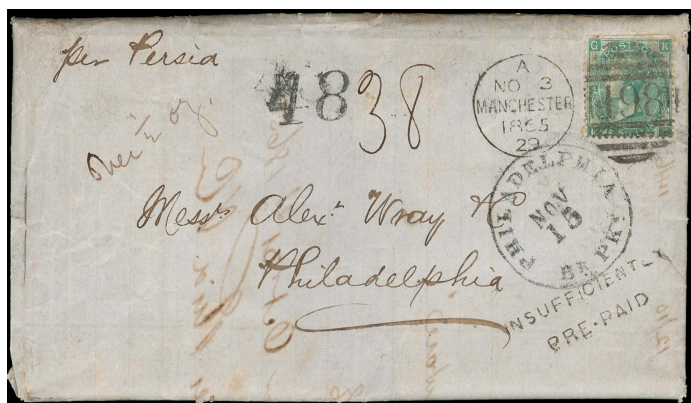 per Persia
48
38
Over ½ oz.
A
NO 3
MANCHESTER
1865
29
G K
POSTAGE
498
Messrs Alexr Wray & Co
Philadelphia
PHILADELPHIA
NOV
15
BR. PKT
INSUFFICIENTLY
PRE-PAID